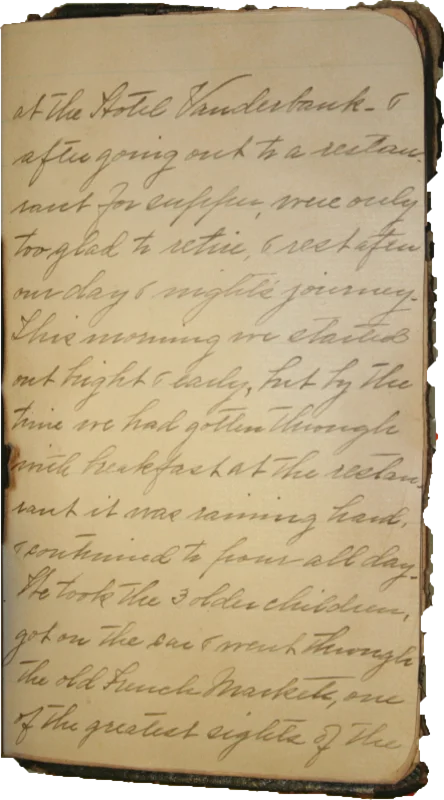 at the Hotel Vanderbank - &
after going out to a restau-
rant for supper, were only
too glad to retire, & rest after
our day & night's journey.
This morning we started
out bright & early, but by the
time we had gotten through
with breakfast at the restau-
rant it was raining hard,
& continued to pour all day.
We took the 3 older children,
got on the car & went through
the old French Markets, one
of the greatest sights of the